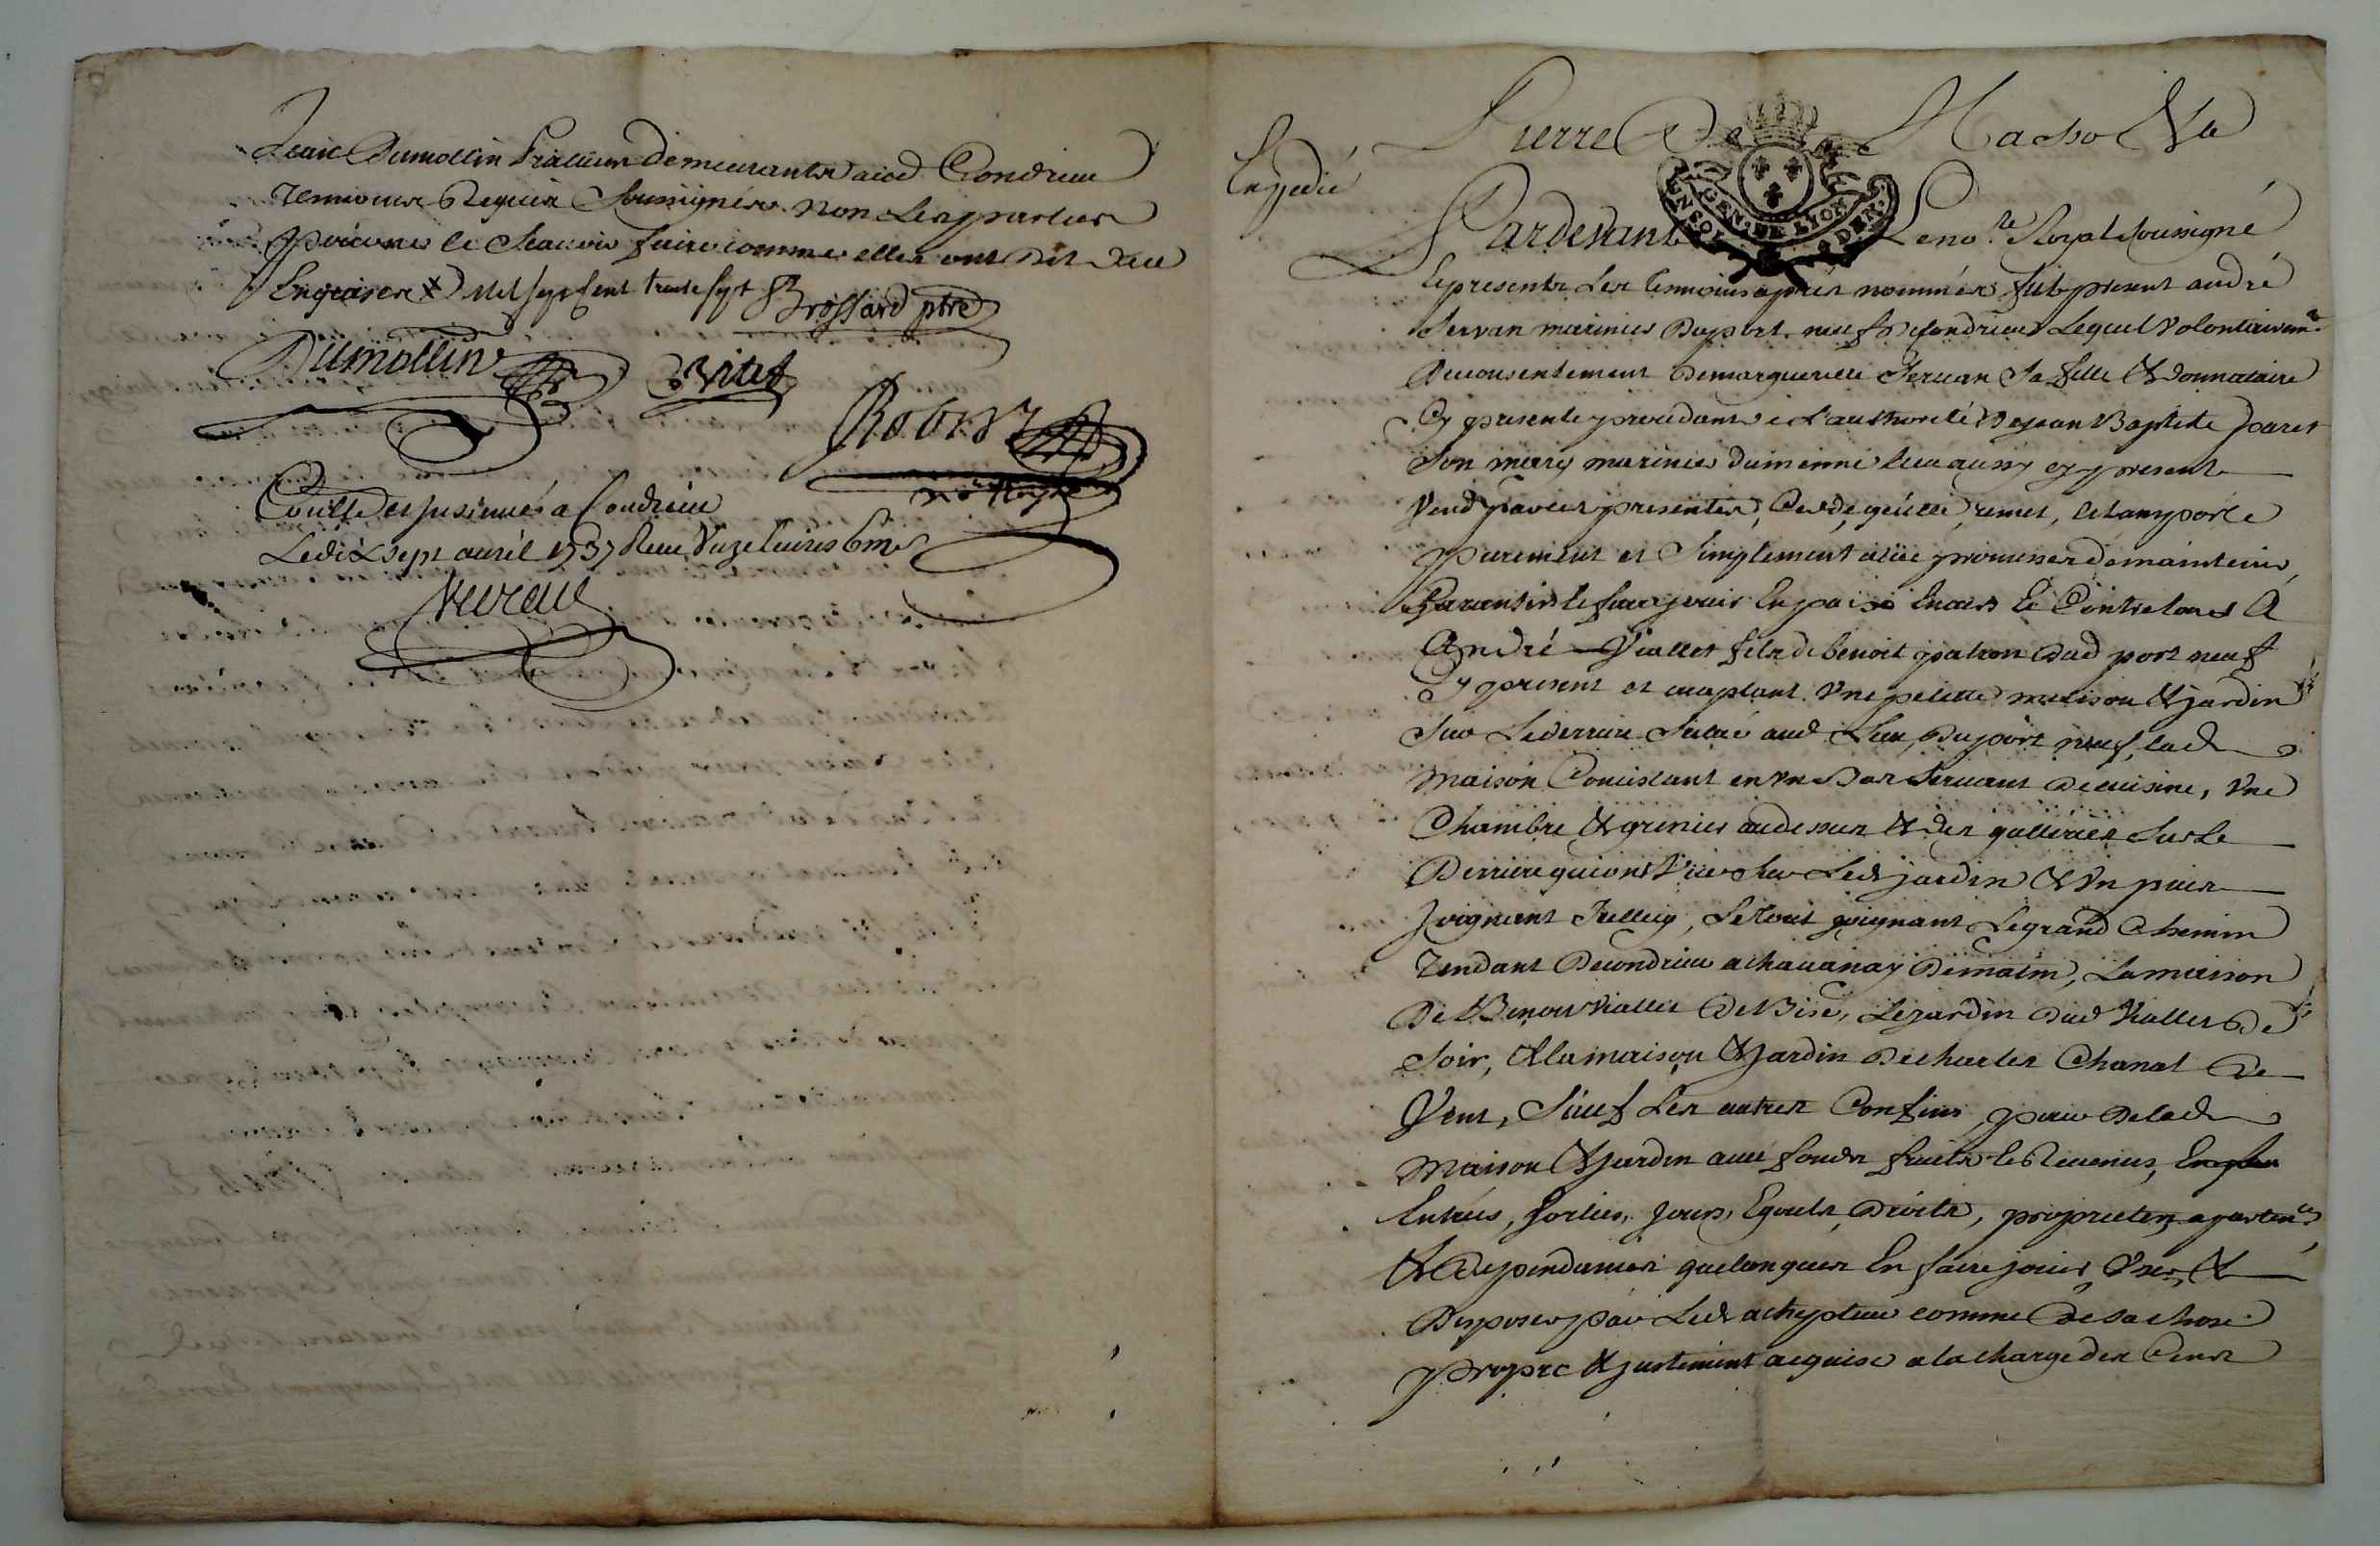 Jean Dumollin praticien demeurants aud Condrieu
temoins Requis Soussignés non Les parties
pour ne le Scavoir faire comme elles ont dit de ce
Enquises Mil sept cent trente sept Brossard ptre
Dumollin Vitet
Robert
no.re Royal
Controllé et Insinué a Condrieu
Le dix sept avril 1737 Reçu
Expedié
Pierre De Masso
GEN. DE LYON
DEN.
Pardevant Le no.re Royal soussigné
Et presents Les temoins apres nommés fut present andré
Servan marinier du port neuf de Condrieu Lequel volontairem.t
du consentement de marguerite Servan Sa fille & donnataire
Cy presente procedante de L'authorité de jean Baptiste paret
Son mary marinier du meme lieu aussy cy present
Vend par ces presentes, Cede, quitte, remet, et transporte
purement et Simplement avec promesse de maintenir,
Garantir et faire jouir En paix Envers Et Contre tous A
André Viallet fils de benoit patron dud port neuf
Cy present et acceptant Une petite maison & jardin
Sur Le derriere Situé aud Lieu du port neuf, lad
maison Concistant en un Bas Servant de cuisine, Une
Chambre & grenier audessus & des galleries Sur Le
Derriere qui ont Vüe Sur Led jardin & Un puis
Joignant Icelluy, Le tout joignant Le grand Chemin
Tendant de Condrieu a chavanay de matin, La maison
De Benoit Viallet de Bise, Le jardin dud Viallet de
Soir, & la maison & jardin de charles Chanal de
Vent, Sauf Les autres Confins, pour de lad
Maison & jardin avec fonds fruits et Revenus,
Entrées, Sorties, Jours, Egouts, droits, proprietes, aparten.ces
& dependances quelconques En faire jouir, User, &
Disposer par Led achepteur comme de sa chose
propre & justement acquise a la charge des Cens